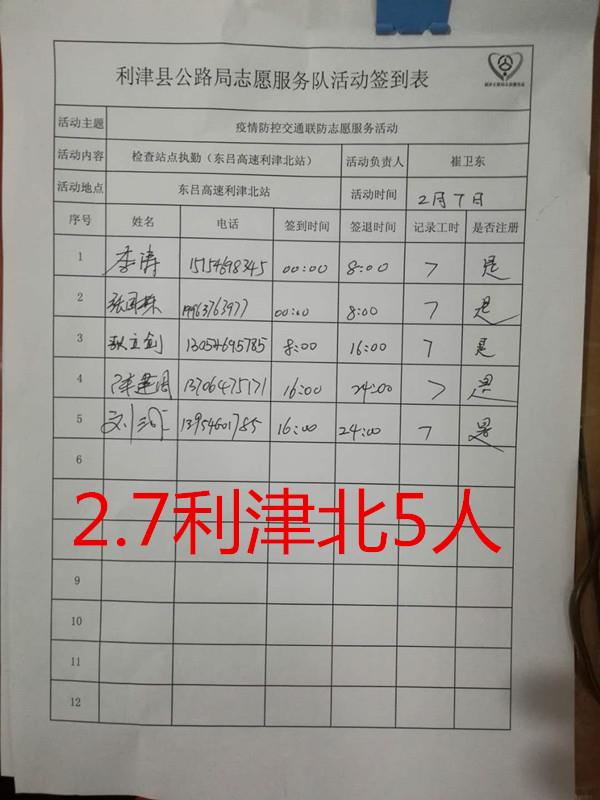 利津县公路局志愿服务队活动签到表
活动主题 疫情防控交通联防志愿服务活动
活动内容 检查站点执勤（东吕高速利津北站） 活动负责人 崔卫东
活动地点 东吕高速利津北站 活动时间 2月7日
序号 姓名 电话 签到时间 签退时间 记录工时 是否注册
1 李涛 15154698345 00:00 8:00 7 是
2 00:00 8:00 7 是
3 13054695785 8:00 16:00 7 是
4 13706475171 16:00 24:00 7 是
5 13954601785 16:00 24:00 7 是
6
2.7利津北5人
9
10
11
12